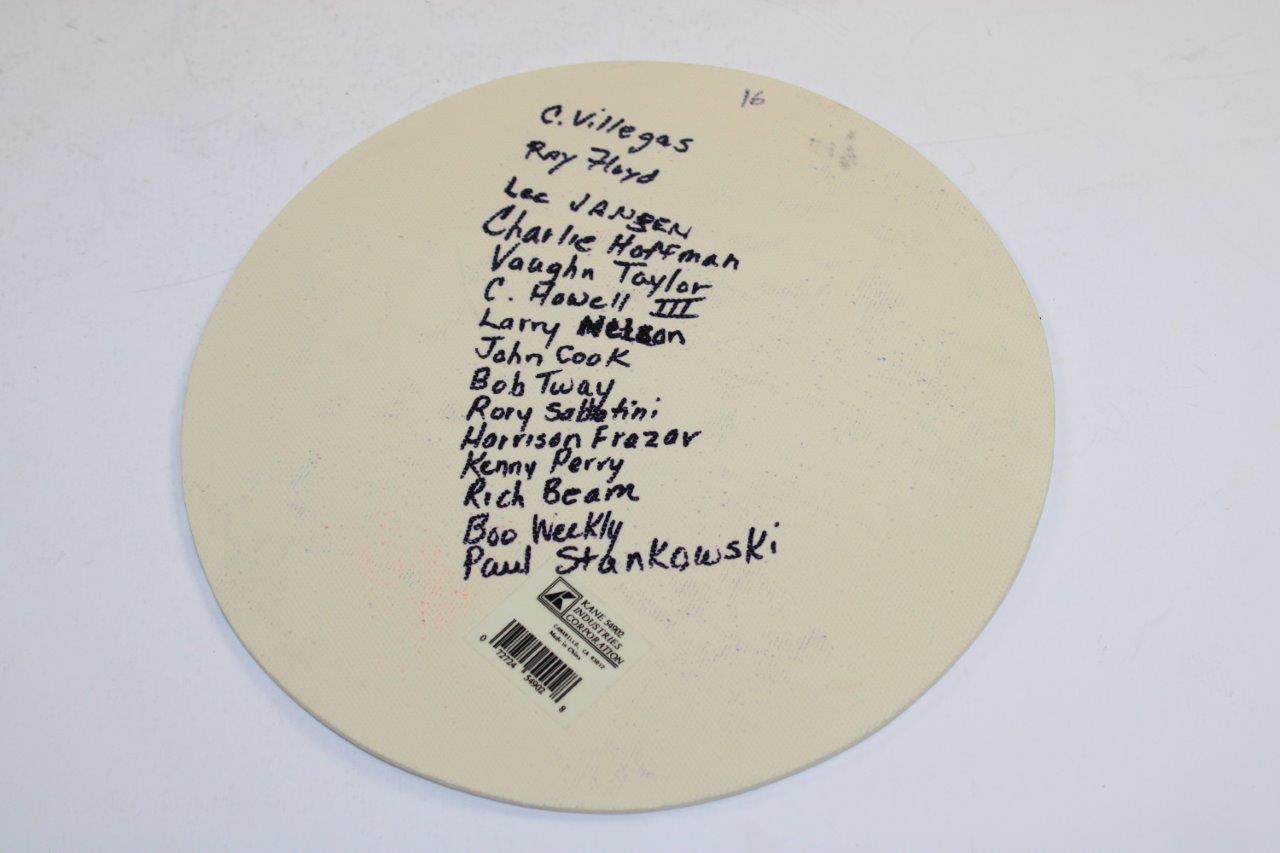 16
C. Villegas
Ray Floyd
Lee JANSEN
Charlie Hoffman
Vaughn Taylor
C. Howell III
Larry Nelson
John Cook
Bob Tway
Rory Sabbatini
Harrison Frazar
Kenny Perry
Rich Beam
Boo Weekly
Paul Stankowski
KANE 54902
INDUSTRIES
CORPORATION
CAMARILLO, CA 93012
Made in China
0 72724 54902 8